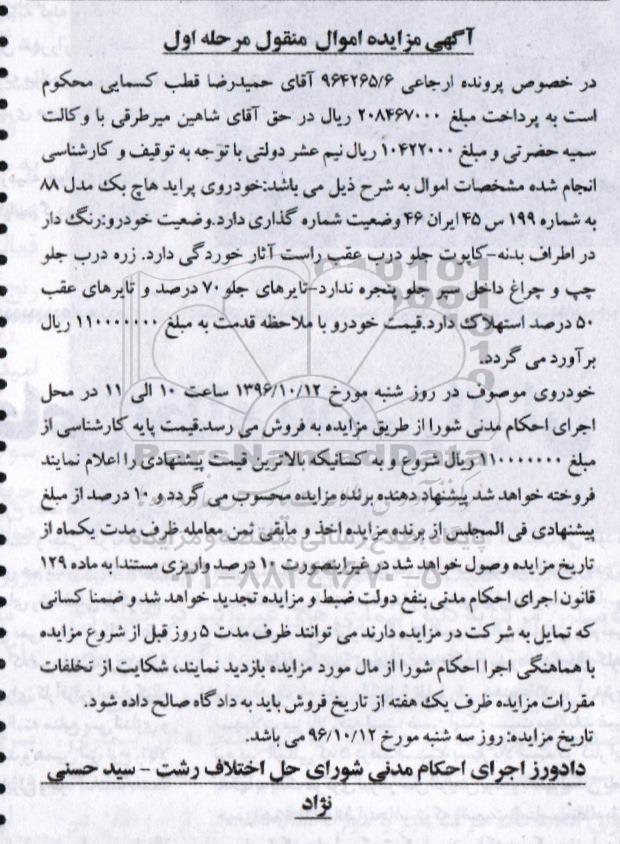 آگهی مزایده اموال منقول مرحله اول
در خصوص پرونده ارجاعی ۹۶۴۲۶۵/۶ آقای حمیدرضا قطب کسمایی محکوم
است به پرداخت مبلغ ۲۰۸۴۶۷۰۰۰ ریال در حق آقای شاهین میرطرقی با وکالت
سمیه حضرتی و مبلغ ۱۰۴۲۲۰۰۰ ریال نیم عشر دولتی با توجه به توقیف و کارشناسی
انجام شده مشخصات اموال به شرح ذیل می باشد:خودروی پراید هاچ بک مدل ۸۸
به شماره ۱۹۹ س ۴۵ ایران ۴۶ وضعیت شماره گذاری دارد.وضعیت خودرو:رنگ دار
در اطراف بدنه-کاپوت جلو درب عقب راست آثار خوردگی دارد. زره درب جلو
چپ و چراغ داخل سپر جلو پنجره ندارد-تایرهای جلو ۷۰ درصد و تایرهای عقب
۵۰ درصد استهلاک دارد.قیمت خودرو با ملاحظه قدمت به مبلغ ۱۱۰۰۰۰۰۰۰ ریال
برآورد می گردد.
خودروی موصوف در روز شنبه مورخ ۱۳۹۶/۱۰/۱۲ ساعت ۱۰ الی ۱۱ در محل
اجرای احکام مدنی شورا از طریق مزایده به فروش می رسد.قیمت پایه کارشناسی از
مبلغ ۱۱۰۰۰۰۰۰۰ ریال شروع و به کسانیکه بالاترین قیمت پیشنهادی را اعلام نمایند
فروخته خواهد شد پیشنهاد دهنده برنده مزایده محسوب می گردد و ۱۰ درصد از مبلغ
پیشنهادی فی المجلس از برنده مزایده اخذ و مابقی ثمن معامله ظرف مدت یکماه از
تاریخ مزایده وصول خواهد شد در غیر اینصورت ۱۰ درصد واریزی مستندا به ماده ۱۲۹
قانون اجرای احکام مدنی بنفع دولت ضبط و مزایده تجدید خواهد شد و ضمنا کسانی
که تمایل به شرکت در مزایده دارند می توانند ظرف مدت ۵ روز قبل از شروع مزایده
با هماهنگی اجرا احکام شورا از مال مورد مزایده بازدید نمایند، شکایت از تخلفات
مقررات مزایده ظرف یک هفته از تاریخ فروش باید به دادگاه صالح داده شود.
تاریخ مزایده: روز سه شنبه مورخ ۹۶/۱۰/۱۲ می باشد.
دادورز اجرای احکام مدنی شورای حل اختلاف رشت - سید حسنی
نژاد
ParsNamadData
پایگاه اطلاع رسانی مناقصه و مزایده
۰۲۱-۸۸۳۴۹۶۷۰-۵